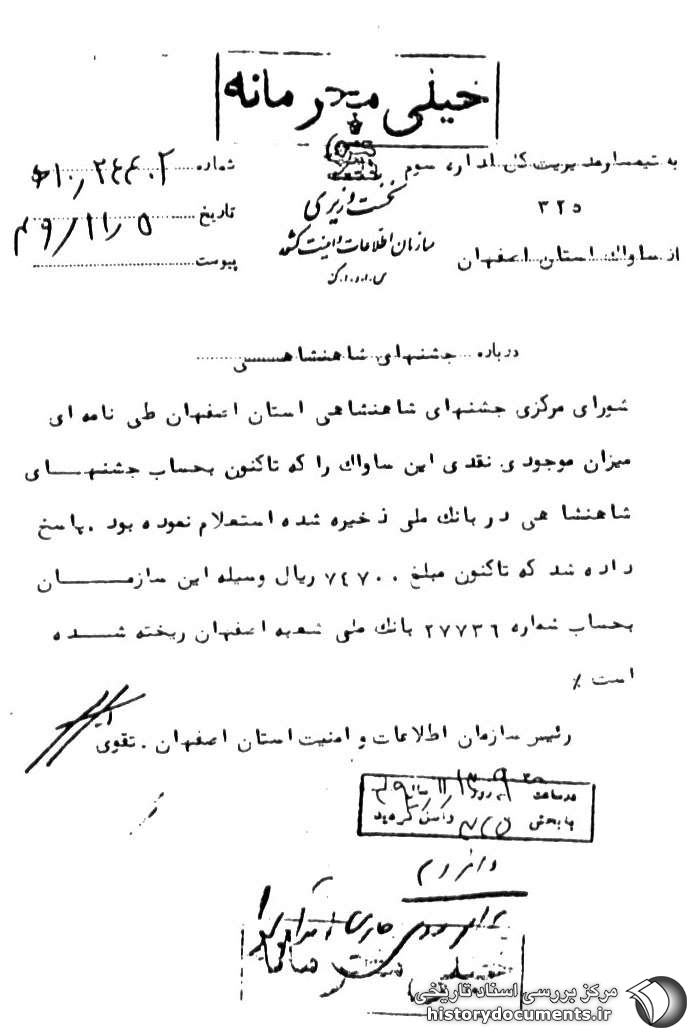 خیلی محرمانه
به تیمسار مدیریت کل اداره سوم
۳۲۵
از ساواک استان اصفهان
نخست وزیری
سازمان اطلاعات و امنیت کشور
س.ا.و.ا.ک
شماره
تاریخ ۴۹/۱۱/۵
پیوست
درباره جشنهای شاهنشاهی
شورای مرکزی جشنهای شاهنشاهی استان اصفهان طی نامه ای
میزان موجودی نقدی این ساواک را که تاکنون بحساب جشنهای
شاهنشاهی در بانک ملی ذخیره شده استعلام نموده بود . پاسخ
داده شد که تاکنون مبلغ ۷٤۷۰۰ ریال وسیله این سازمان
بحساب شماره ۲۷۷۳٦ بانک ملی شعبه اصفهان ریخته شده
است ٪
رئیس سازمان اطلاعات و امنیت استان اصفهان . تقوی
در ساعت روز
به بخش ۳۲۵ واصل گردید
خیلی محرمانه
مرکز بررسی اسناد تاریخی
historydocuments.ir